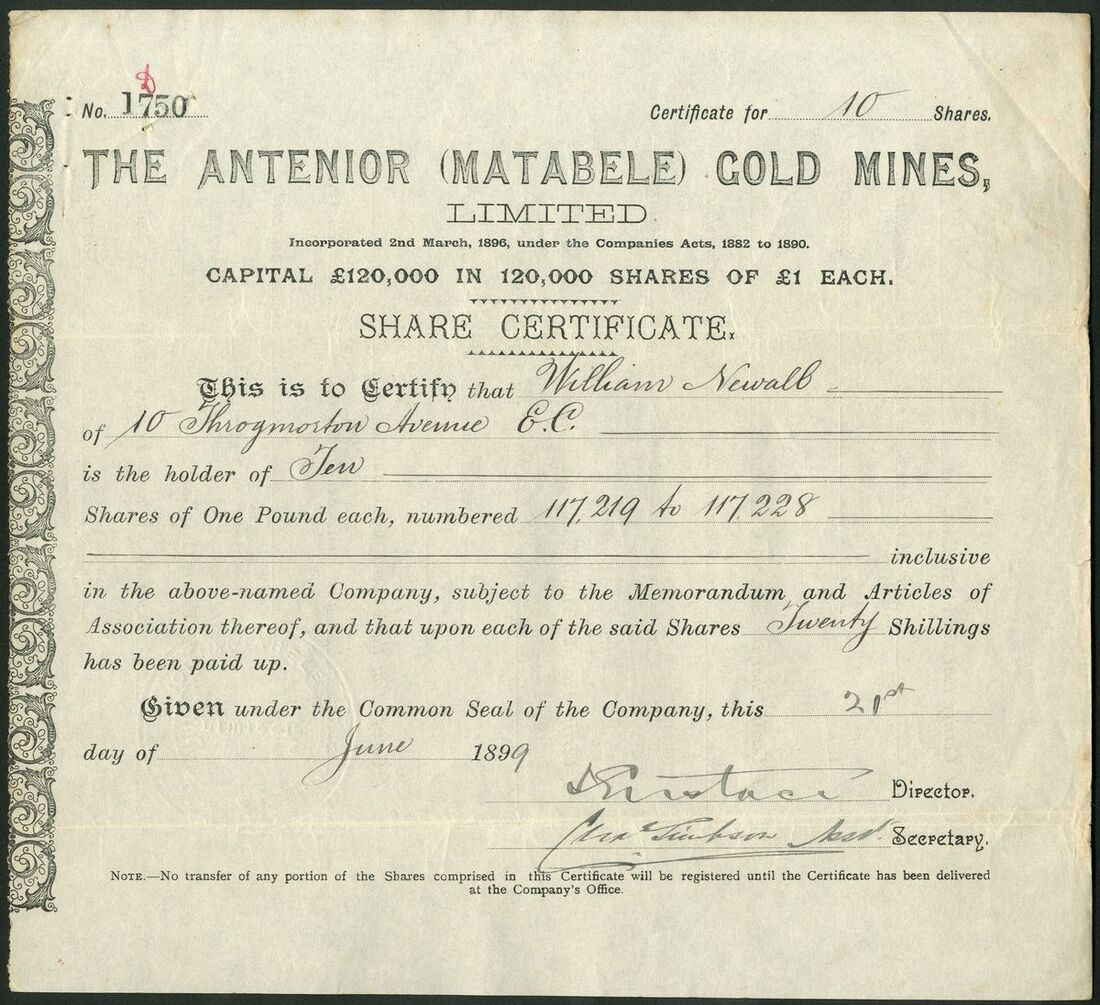 No. 1750
Certificate for 10 Shares.
THE ANTENIOR (MATABELE) GOLD MINES,
LIMITED.
Incorporated 2nd March, 1896, under the Companies Acts, 1882 to 1890.
CAPITAL £120,000 IN 120,000 SHARES OF £1 EACH.
SHARE CERTIFICATE.
This is to Certify that William Newall
of 10 Throgmorton Avenue E.C.
is the holder of Ten
Shares of One Pound each, numbered 117,219 to 117,228
inclusive
in the above-named Company, subject to the Memorandum and Articles of
Association thereof, and that upon each of the said Shares Twenty Shillings
has been paid up.
Given under the Common Seal of the Company, this 21st
day of June 1899
Eustace Director.
Asst. Secretary.
NOTE.—No transfer of any portion of the Shares comprised in this Certificate will be registered until the Certificate has been delivered
at the Company's Office.